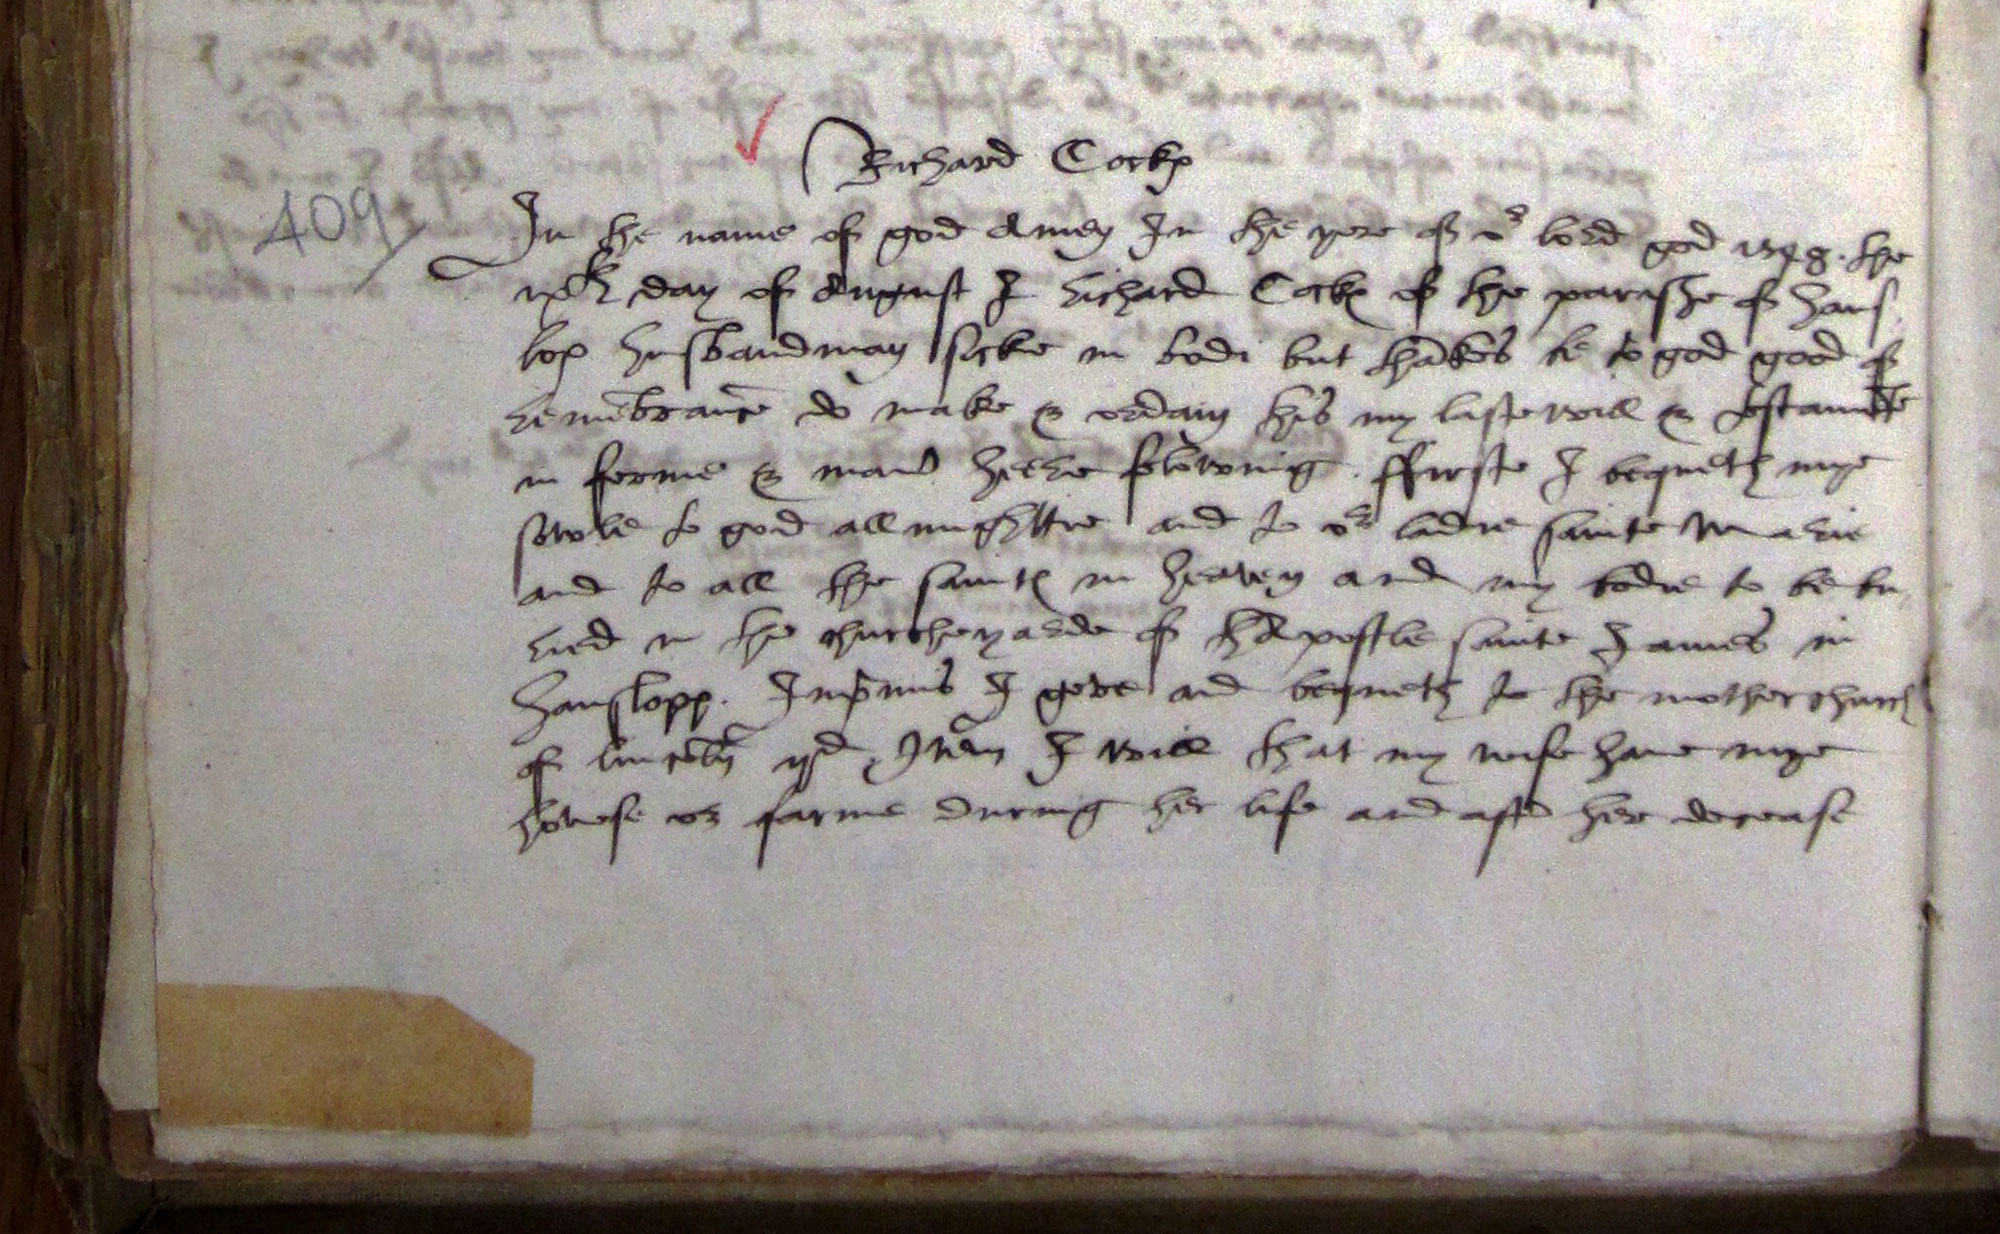 409
Richard Cock
In the name of god Amen In the yere of or lord god 1548. the
ixth day of August I Richard Cock of the parishe of hans
lop husbandman sicke in bodi but thākes be to god good of
remēbraūce do make & ordain this my laste will & testamēte
in forme & maner here folowing. ffirste I bequeth mye
sowle to god allmightie and to or ladie sainte Marie
and to all the saintes in heaven and my bodie to be bu
ried in the churcheyarde of thapostle sainte James in
hanslopp. Inpmis I geve and bequeth to the mother church
of lincoln ijd, Itm I will that my wife have mye
howse or farme during her life and aftr her decease